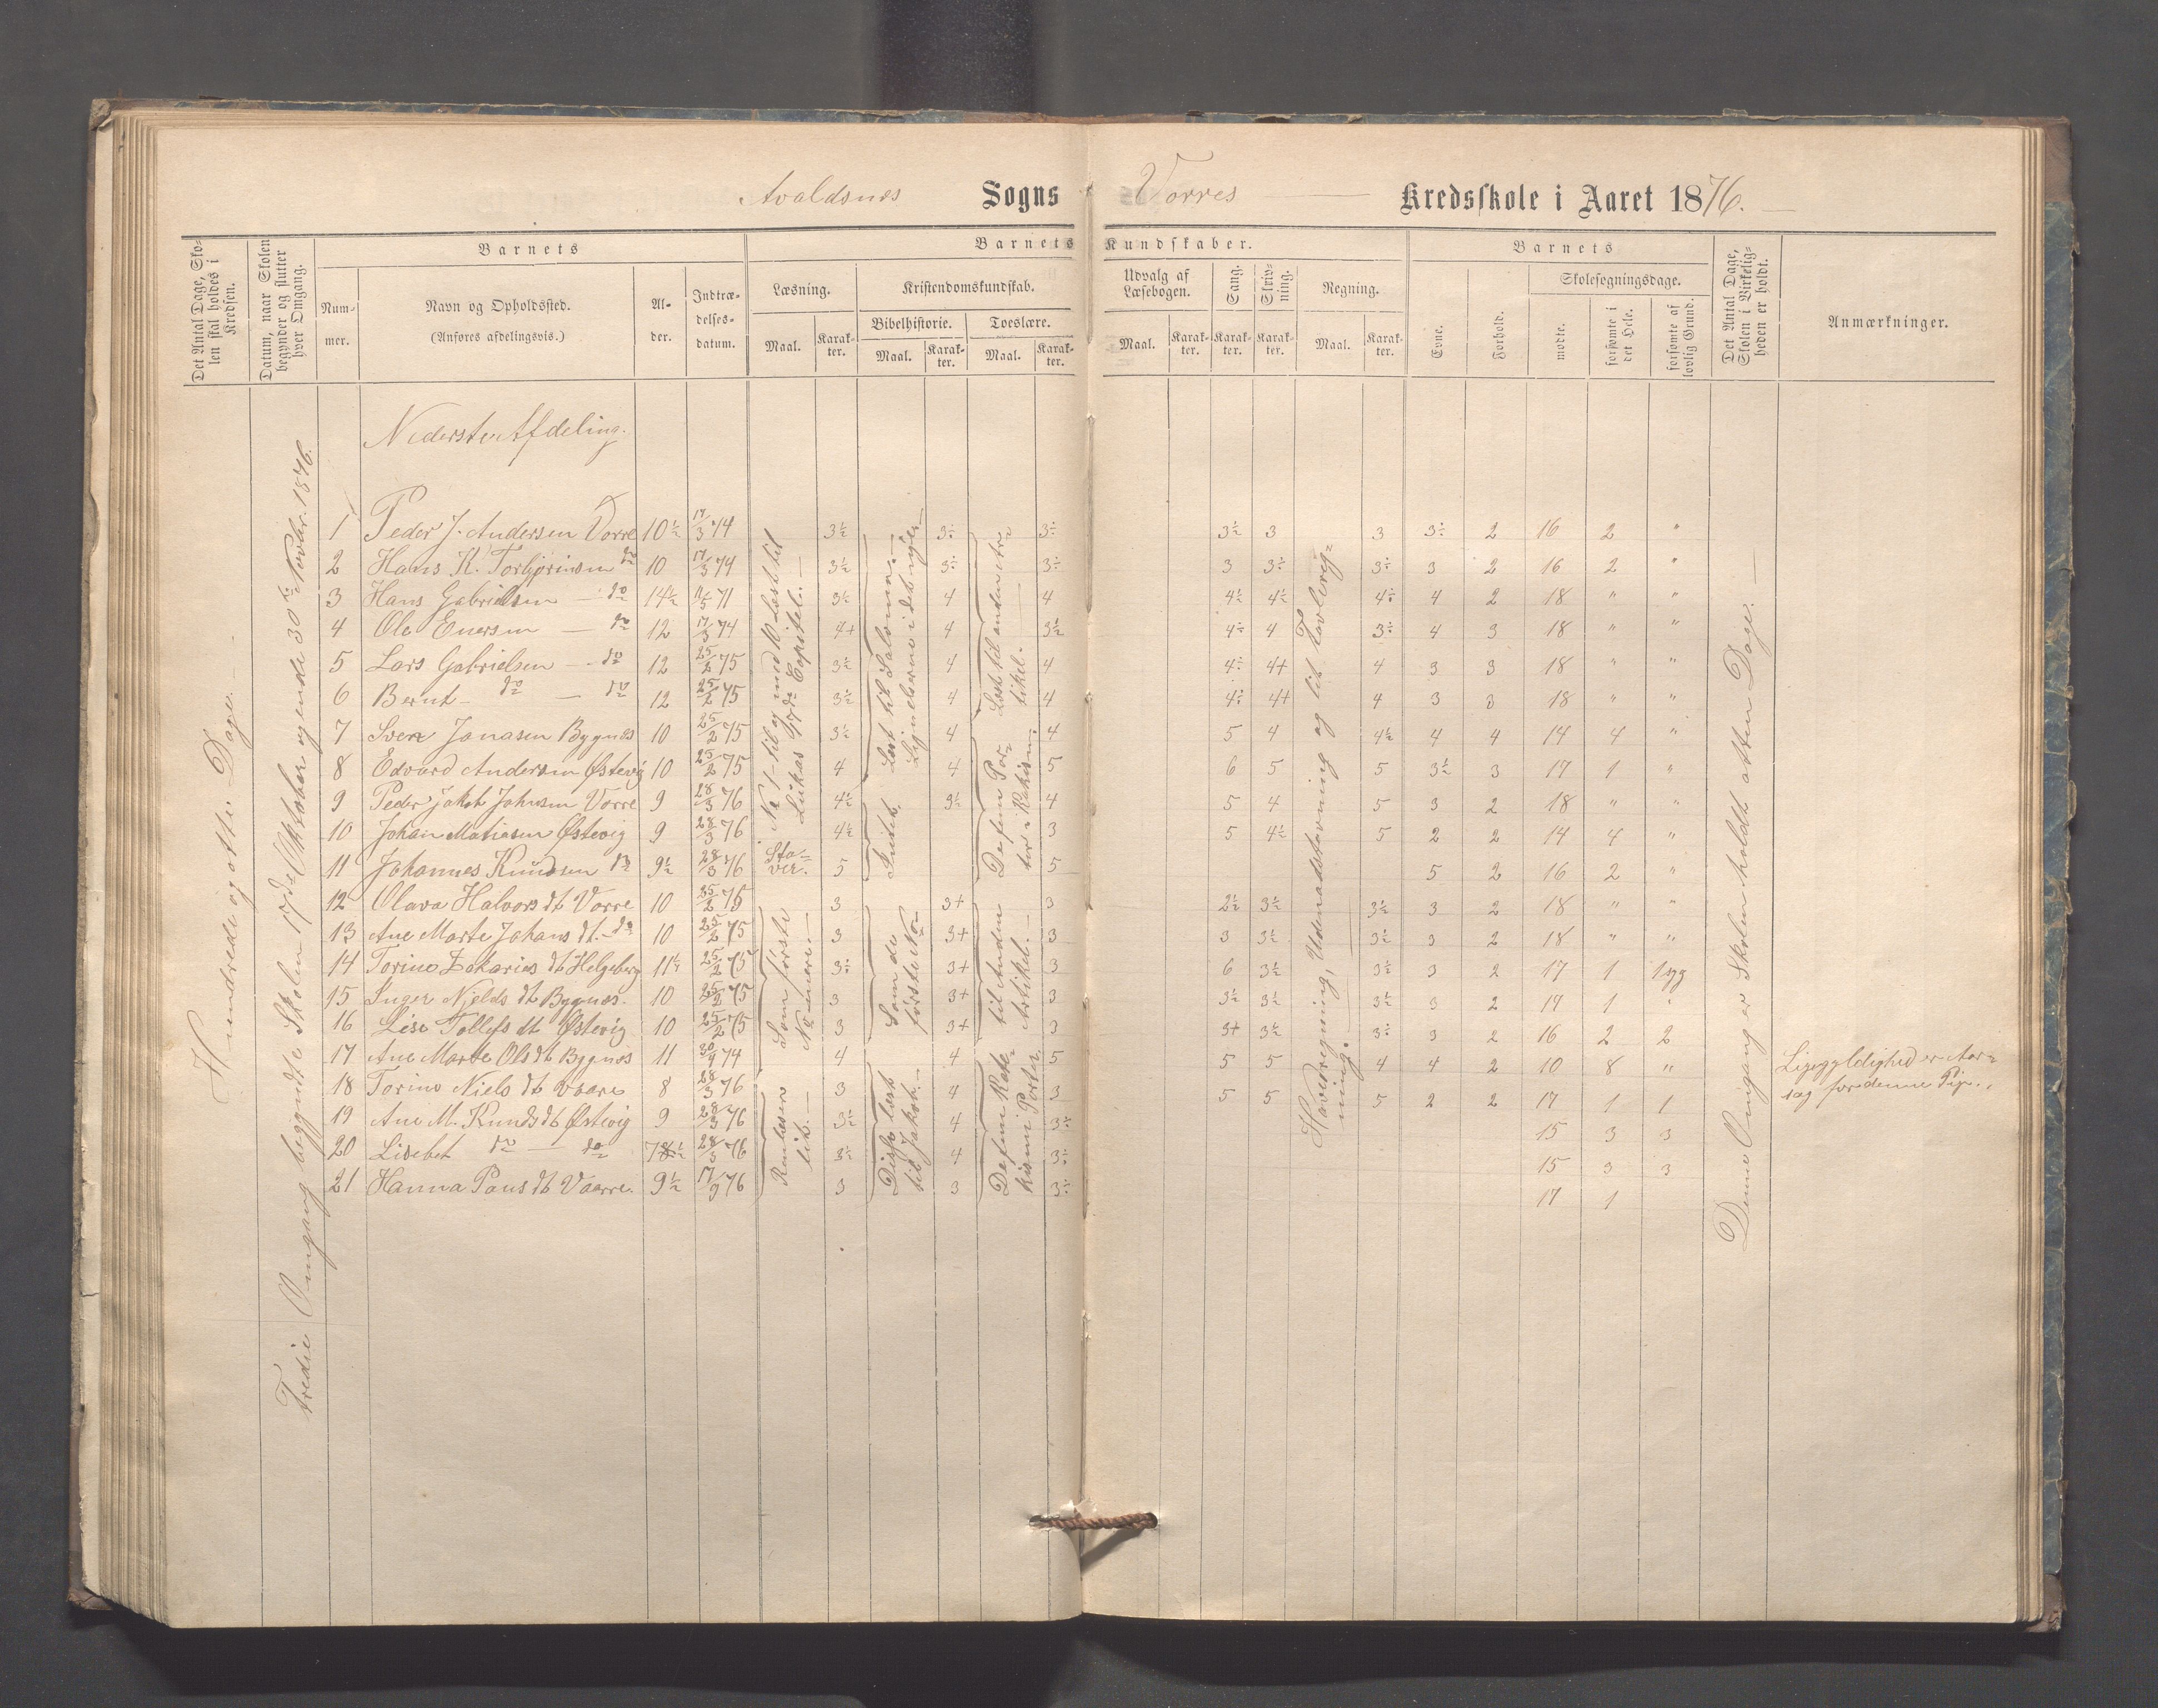 Avaldsnes Sogns Vorres Kredsskole i Aaret 1876.
Det Antal Dage, Skolen skal holdes i Kredsen.
Datum, naar Skolen begynder og slutter hver Omgang.
Barnets
Nummer.
Navn og Opholdssted.
(Anføres afdelingsvis.)
Alder.
Indtrædelsesdatum.
Barnets Kundskaber.
Læsning.
Maal. Karakter.
Kristendomskundskab.
Bibelhistorie. Troeslære.
Maal. Karakter. Maal. Karakter.
Udvalg af Læsebogen.
Maal. Karakter.
Sang. Karakter.
Skrivning. Karakter.
Regning.
Maal. Karakter.
Barnets
Evne. Forhold.
Skolesøgningsdage.
mødte. forsømte i det Hele. forsømte af lovlig Grund.
Det Antal Dage, Skolen i Virkeligheden er holdt.
Anmærkninger.
Hundrede og otte Dage.
Tredie Omgang begyndte Skolen 17de Oktober og ende 30te Novbr. 1876.
Nederste Afdeling.
1 Peder J. Andersen Vorre 10½ 17/3 74 3½ 3÷ 3÷ 3½ 3 3 3÷ 2 16 2 "
2 Hans K. Torbjørnsen do 10 17/3 74 3½ 3÷ 3÷ 3 3÷ 3÷ 3 2 16 2 "
3 Hans Gabrielsen do 14½ 71 3½ 4 4 4½ 4½ 4÷ 4 2 18 " "
4 Ole Enersen do 12 17/3 74 4+ 4 3½ 4÷ 4 3÷ 4 3 18 " "
5 Lars Gabrielsen do 12 25/2 75 3½ 4 4 4÷ 4+ 4 3 3 18 " "
6 Bernt do do 12 25/2 75 3½ 4 4 4÷ 4+ 4 3 3 18 " "
7 Sven Jonasen Bygnæs 10 25/2 75 3½ 4 4 5 4 4½ 4 4 14 4 "
8 Edvard Andersen Østevig 10 25/2 75 4 4 5 6 5 5 3½ 3 17 1 "
9 Peder Jakob Johnsen Vorre 9 28/3 76 4½ 3½ 4 5 4 5 3 2 18 " "
10 Johan Matiasen Østevig 9 28/3 76 4½ 3 5 4½ 5 2 2 14 4 "
11 Johannes Knudsen do 9½ 28/3 76 5 5 5 2 16 2 "
12 Olava Halvors dt Vorre 10 25/2 75 3 3+ 3 2½ 3½ 3½ 3 2 18 " "
13 Ane Marte Johans dt. do 10 25/2 75 3 3+ 3 3 3½ 3½ 3 2 18 " "
14 Torine Zakarias dt Helgeberg 11½ 25/2 75 3÷ 3+ 3 6 3½ 3½ 3 2 17 1 1 syg
15 Inger Nields dt Bygnæs. 10 25/2 75 3 3+ 3 3½ 3½ 3½ 3 2 17 1 "
16 Lise Tollefs dt Østevig 10 25/2 75 3 3+ 3 3+ 3½ 3÷ 3 2 16 2 2
17 Ane Marte Ols dt Bygnæs 11 74 4 4 5 5 5 4 4 2 10 8 "
18 Torine Niels dt Vaare 8 28/3 76 3 4 3 5 5 5 2 2 17 1 1
19 Ane M. Knuds dt Østevig 9 28/3 76 3½ 4 3÷ 15 3 3
20 Lisebet do do 28/3 76 3½ 4 3÷ 15 3 3
21 Hanna Pous dt Vaarre. 9½ 17/9 76 3 3 3÷ 17 1
No 1 til og med 10 Læst til Lukas 17de Capitel.
Stover.
Som første Nomere.
Læst til Salomon
Lignelserne i det nye
Intet.
Som de første No
Disse læst til Jakob.
Læst til anden Artikel.
De fem Parter i Katekism:
til Anden Artikel.
De fem Katekismi Parter.
Hovedregning, Udenadstavning og lit Tavleregning.
Denne Omgang er Skolen holdt atten Dage.
Ligegyldighed er Aarsag for denne Pige.